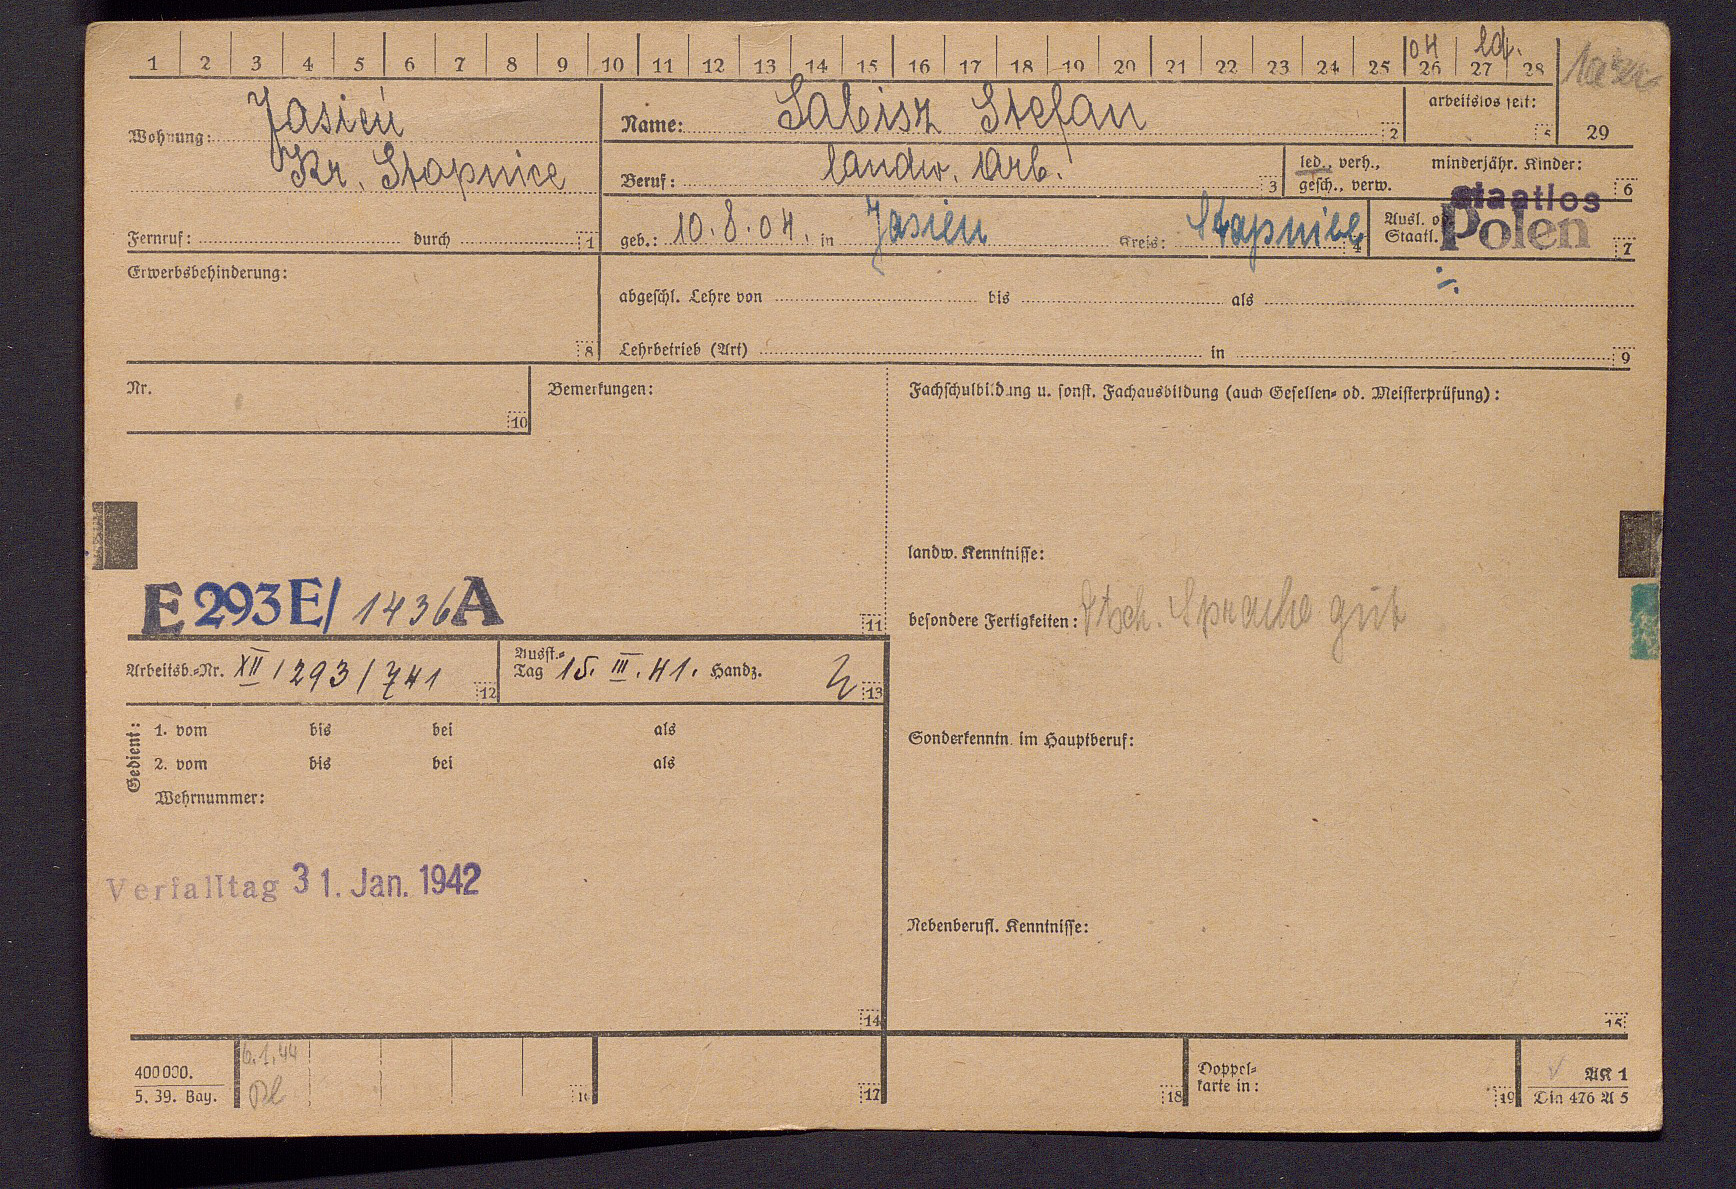 1 2 3 4 5 6 7 8 9 10 11 12 13 14 15 16 17 18 19 20 21 22 23 24 25 26 27 28
04 led.
Wohnung: Jasień
Kr. Stopnice
Fernruf: durch 1
Name: Sabisz Stefan 2
arbeitslos seit: 5
29
Beruf: landw. Arb. 3
led., verh., gesch., verw.
minderjähr. Kinder: 6
geb.: 10.8.04. in Jasień Kreis: Stopnice 4
Ausl. od. Staatl. staatlos Polen 7
Erwerbsbehinderung: 8
abgeschl. Lehre von bis als
Lehrbetrieb (Art) in 9
Nr. 10
Bemerkungen:
E 293 E/ 1436 A
11
Fachschulbildung u. sonst. Fachausbildung (auch Gesellen- od. Meisterprüfung):
landw. Kenntnisse:
besondere Fertigkeiten: Dtsch. Sprache gut
Sonderkenntn. im Hauptberuf:
Nebenberufl. Kenntnisse:
15
Arbeitsb.-Nr. XII/293/741 12
Ausst.-Tag 15. III. 41. Handz. 13
Gedient:
1. vom bis bei als
2. vom bis bei als
Wehrnummer:
Verfalltag 31. Jan. 1942
14
400000.
5. 39. Bay.
6.1.44
16
17
18
Doppel-
karte in: 19
AK 1
Din 476 A 5